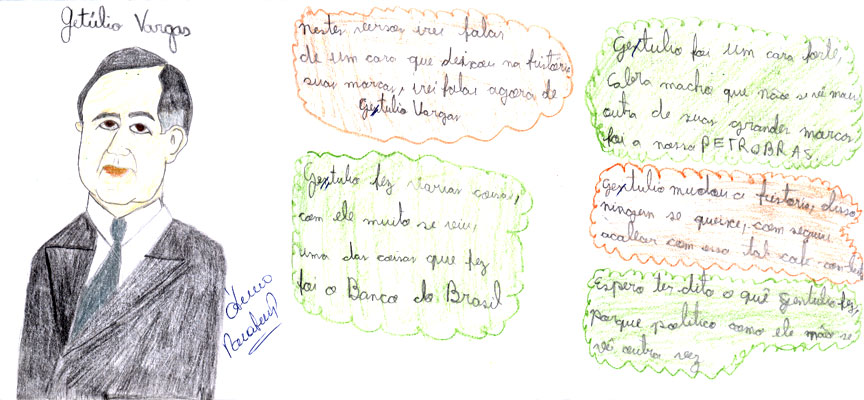 Getúlio Vargas
Nestes versos irei falar
de um cara que deixou na história
suas marcas, irei falar agora de
Gextulio Vargas
Gextulio fez varias coisas,
com ele muito se viu,
uma das coisas que fez
foi o Banco do Brasil
Gextulio foi um cara forte,
Cabra macho que não se vê mais
outra de suas grandes marcas
foi a nossa PETROBRAS.
Gextulio mudou a história, disso
ninguem se queixe, com seguiu
acabar com essa tal café-com-leite
Espero ter dito o quê Gentulio fez,
porque politico como ele não se
vê outra vez